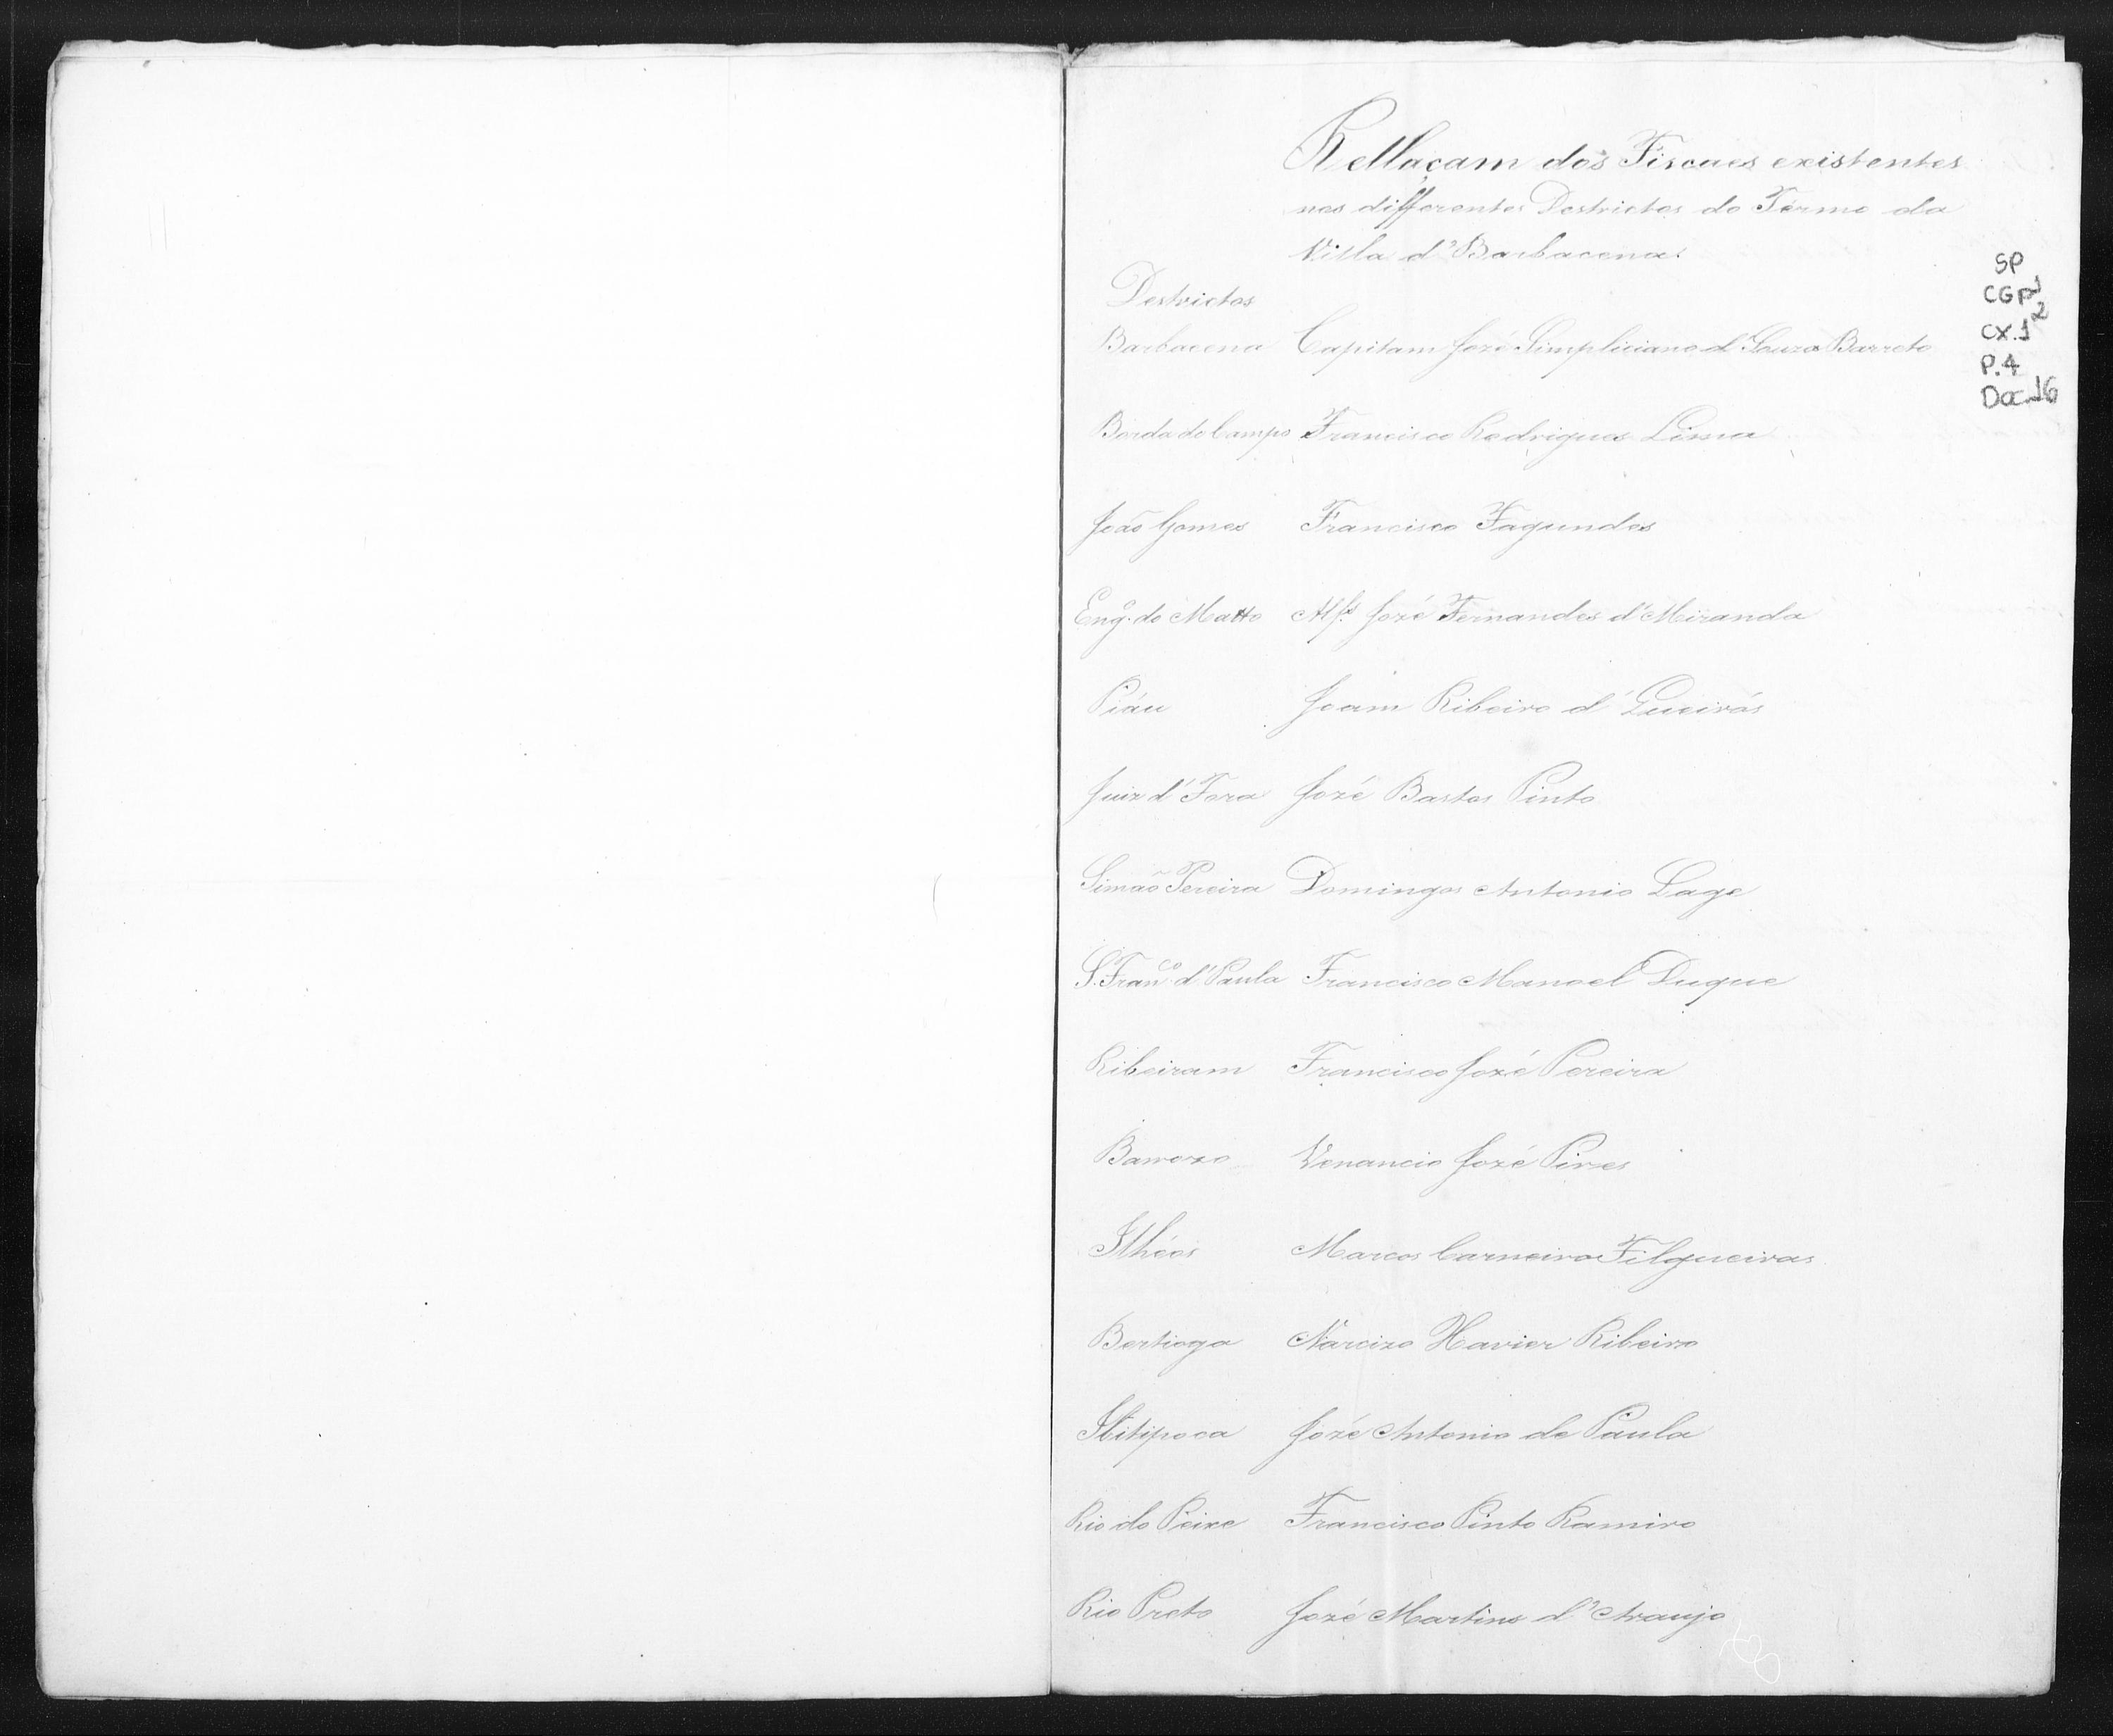 Rellaçam dos Fiscaes existentes
nos differentes Destrictos do Têrmo da
Villa d'Barbacena.
SP
CGP1
2
CX.1
P.4
Doc.16
Destrictos
Barbacena Capitam Jozé Simpliciano d'Souza Barreto
Borda do Campo Francisco Rodrigues Lima
João Gomes Francisco Fagundes
Engº. do Matto Alfs. Jozé Fernandes d'Miranda
Piáu Joam Ribeiro d'Queirós
Juiz d'Fora Jozé Bastos Pinto
Simão Pereira Domingos Antonio Lage
S. Franco. d'Paula Francisco Manoel Duque
Ribeiram Francisco Jozé Pereira
Barrozo Venancio Jozé Pires
Ilhéos Marcos Carneiro Filgueiras
Bertioga Narcizo Xavier Ribeiro
Ibitipoca Jozé Antonio de Paula
Rio do Peixe Francisco Pinto Ramiro
Rio Preto Jozé Martins d'Araujo